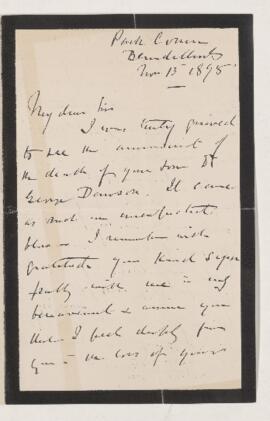 Park
Nov 15 1895
My dear Sir
I was truly grieved
to see the announcement of
the death of your son Dr
George Dawson. It came
as such an unexpected
blow – I remember with
gratitude your kind sympa
thy with me in my
bereavement & assure you
that I feel deeply for
you in the loss of your